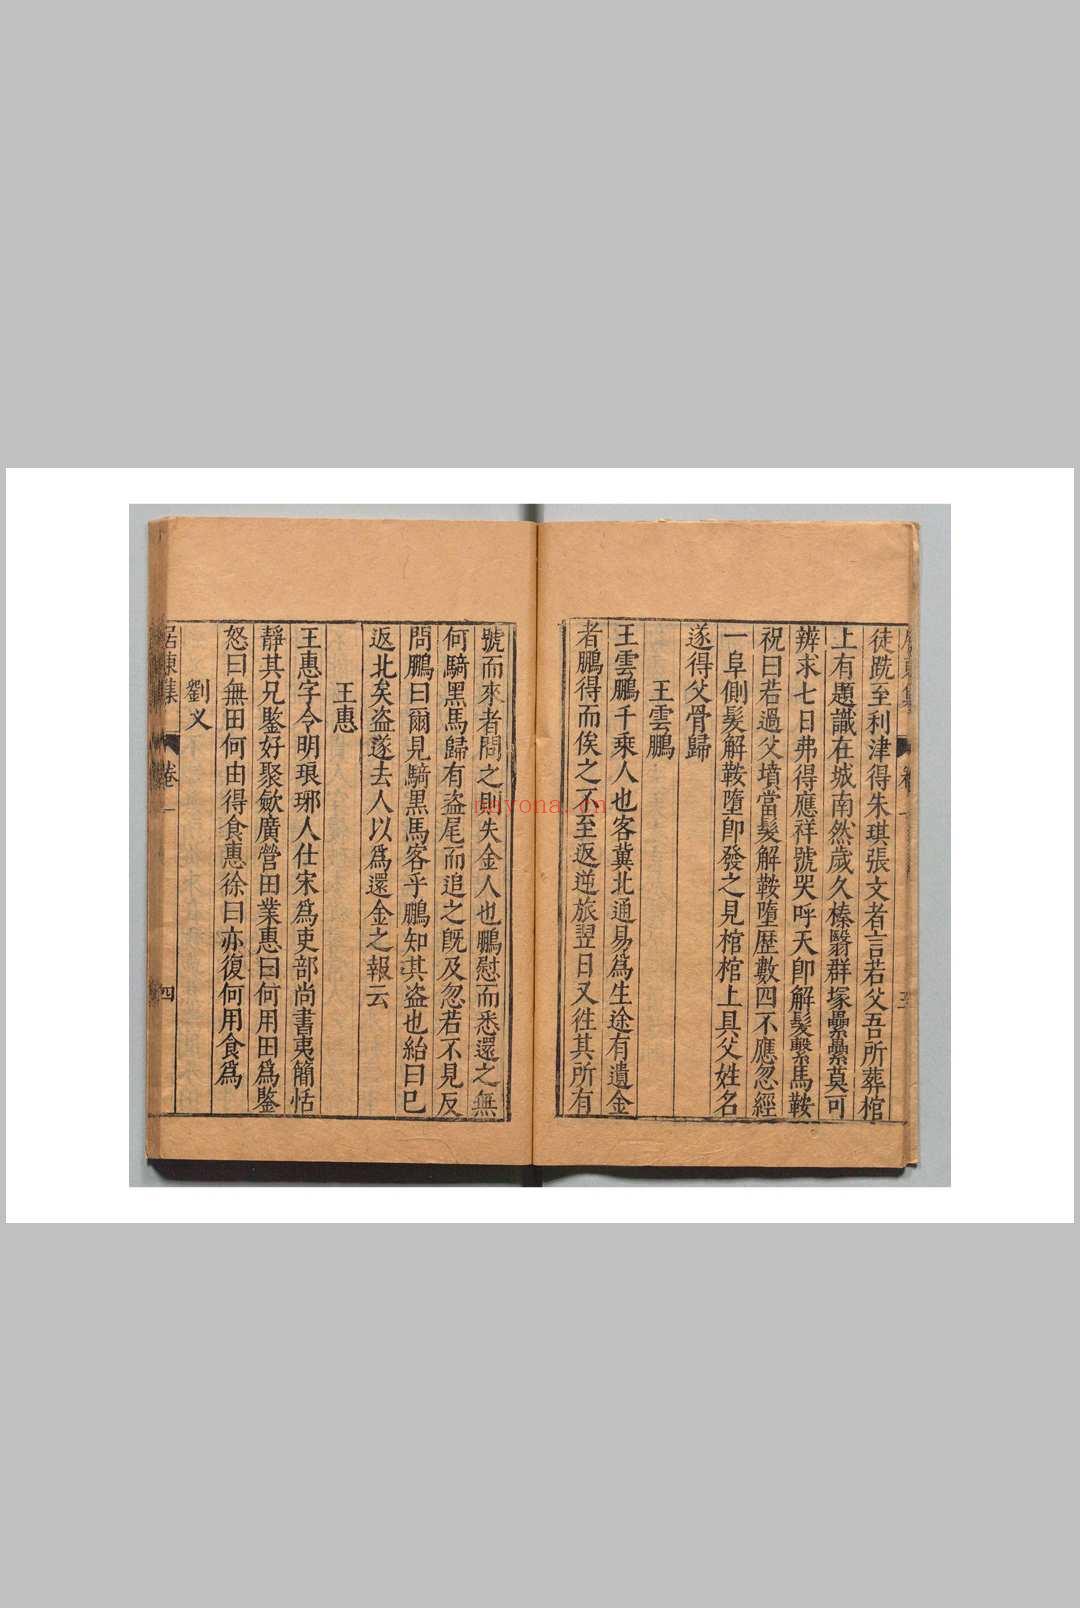 徒跣至利津得朱琪張文者言若父吾所葬棺
上有題識在城南然歲久榛翳群塚纍纍莫可
辨求七日弗得應祥號哭呼天卽解髮繫馬鞍
祝曰若過父墳當髮解鞍墮歷數四不應忽經
一阜側髮解鞍墮卽發之見棺棺上具父姓名
遂得父骨歸
王雲鵬
王雲鵬千乘人也客冀北通易爲生途有遺金
者鵬得而俟之不至返逆旅翌日又徃其所有
號而來者問之則失金人也鵬慰而悉還之無
何騎黑馬歸有盗尾而追之旣及忽若不見反
問鵬曰爾見騎黑馬客乎鵬知其盗也紿曰已
返北矣盗遂去人以爲還金之報云
王惠
王惠字令明琅琊人仕宋爲吏部尚書夷簡恬
靜其兄鑒好聚歛廣營田業惠曰何用田爲鑒
怒曰無田何由得食惠徐曰亦復何用食爲
劉义
卷一
四
nayona.cn